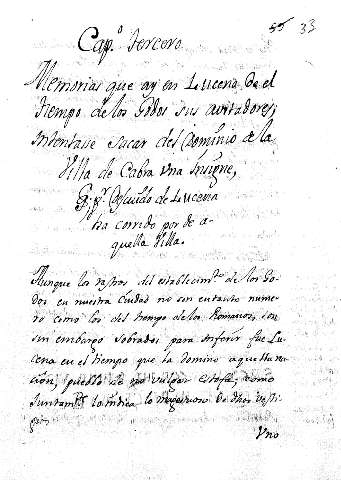 55 33
Cap.º tercero
Memorias que ay en Lucena de el
tiempo de los Godos sus avitadores;
intentase sacar del Dominio de la
Villa de Cabra una Insigne,
q.e p.r descuido de Lucena
ha corrido por de a-
quella Villa.
Aunque los rastros del establecim.to de los Go-
dos en nuestra Ciudad no son en tanto nume-
ro como los del tiempo de los Romanos, son
sin embargo sobrados para inferir fue Lu-
cena en el tiempo que la domino aquella na-
cion, pueblo de no vulgar estofa, como
juntam.te lo indica lo magestuoso de dhos vesti-
gios.
Uno